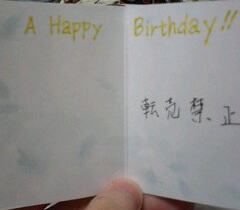 A Happy Birthday!!
転売禁止